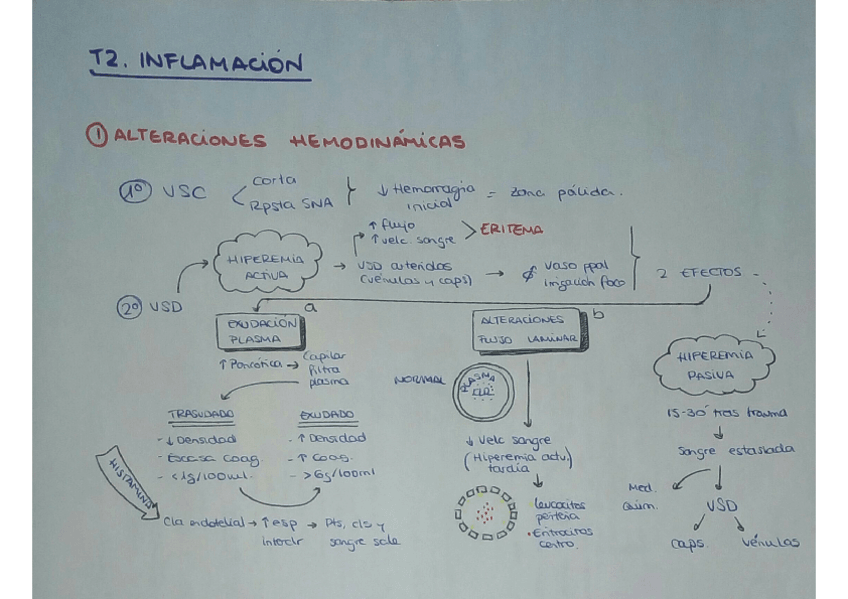 T2. INFLAMACIÓN
① ALTERACIONES HEMODINÁMICAS
1º VSC
Corta
Rpsta SNA
↓ Hemorragia
inicial
= zona pálida.
HIPEREMIA
ACTIVA
↑ flujo
↑ velc. sangre
ERITEMA
→ VSD arteriolas
(vénulas y caps)
vaso ppal
irrigación foco
2 EFECTOS
2º VSD
a
EXUDACIÓN
PLASMA
↑ Poncótica → Capilar
filtra
plasma
b
ALTERACIONES
FLUJO LAMINAR
NORMAL
PLASMA
HIPEREMIA
PASIVA
15-30' tras trauma
Sangre estasiada
Med.
Quim.
VSD
caps.
vénulas
TRASUDADO
- ↓ Densidad
- Escasa coag.
- <1g/100ml.
EXUDADO
- ↑ Densidad
- ↑ Coag.
- >6g/100ml
HISTAMINA
Cla endotelial → ↑ esp
interclr
→ Pts, cls y
sangre sale
↓ Velc sangre
(Hiperemia actv.)
tardía
leucocitos
periferia
• Eritrocitos
centro.